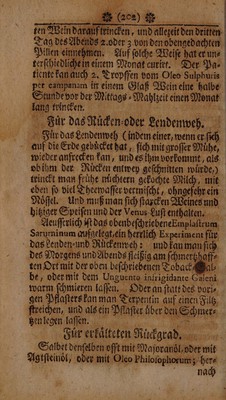 (202)
ten Wein darauf trincken, und allezeit den dritten
Tag des Abends 2. oder 3 von den obengedachten
Pillen einnehmen. Auf solche Weise hat er un-
terschiedliche in einem Monat curirt. Der Pa-
tiente kan auch 2. Tropffen vom Oleo Sulphuris
per campanam in einem Glaß Wein eine halbe
Stunde vor der Mittags-Mahlzeit einen Monat
lang trincken.
Für das Rücken oder Lendenweh.
Für das Lendenweh (indem einer, wenn er sich
auf die Erde gebücket hat, sich mit grosser Mühe,
wieder aufrecken kan, und es ihm vorkommt, als
ob ihm der Rücken entzwey geschnitten würde,)
trinckt man frühe nüchtern gekochte Milch, mit
eben so viel Theewasser vermischt, ohngefehr ein
Nössel. Und muß man sich starcken Weines und
hitziger Speisen und der Venus Lust enthalten.
Aeusserlich ist das obenbeschriebene Emplastrum
Saturninum aufgelegt ein herrlich Experiment für
das Lenden- und Rückenweh: und kan man sich
des Morgens und Abends fleißig am schmertzhaff-
ten Ort mit der oben beschriebenen Toback-Sal-
be, oder mit dem Unguento infrigidante Galeni
warm schmieren lassen. Oder an statt des vori-
gen Pflasters kan man Terpentin auf einen Filtz
streichen, und als ein Pflaster über den Schmer-
tzen legen lassen.
Für erkälteten Rückgrad.
Salbet denselben offt mit Majoranöl, oder mit
Agtsteinöl, oder mit Oleo Philosophorum; her-
nach